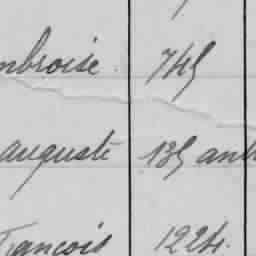 mbroise. 745
auguste 135 anb
François 1224.